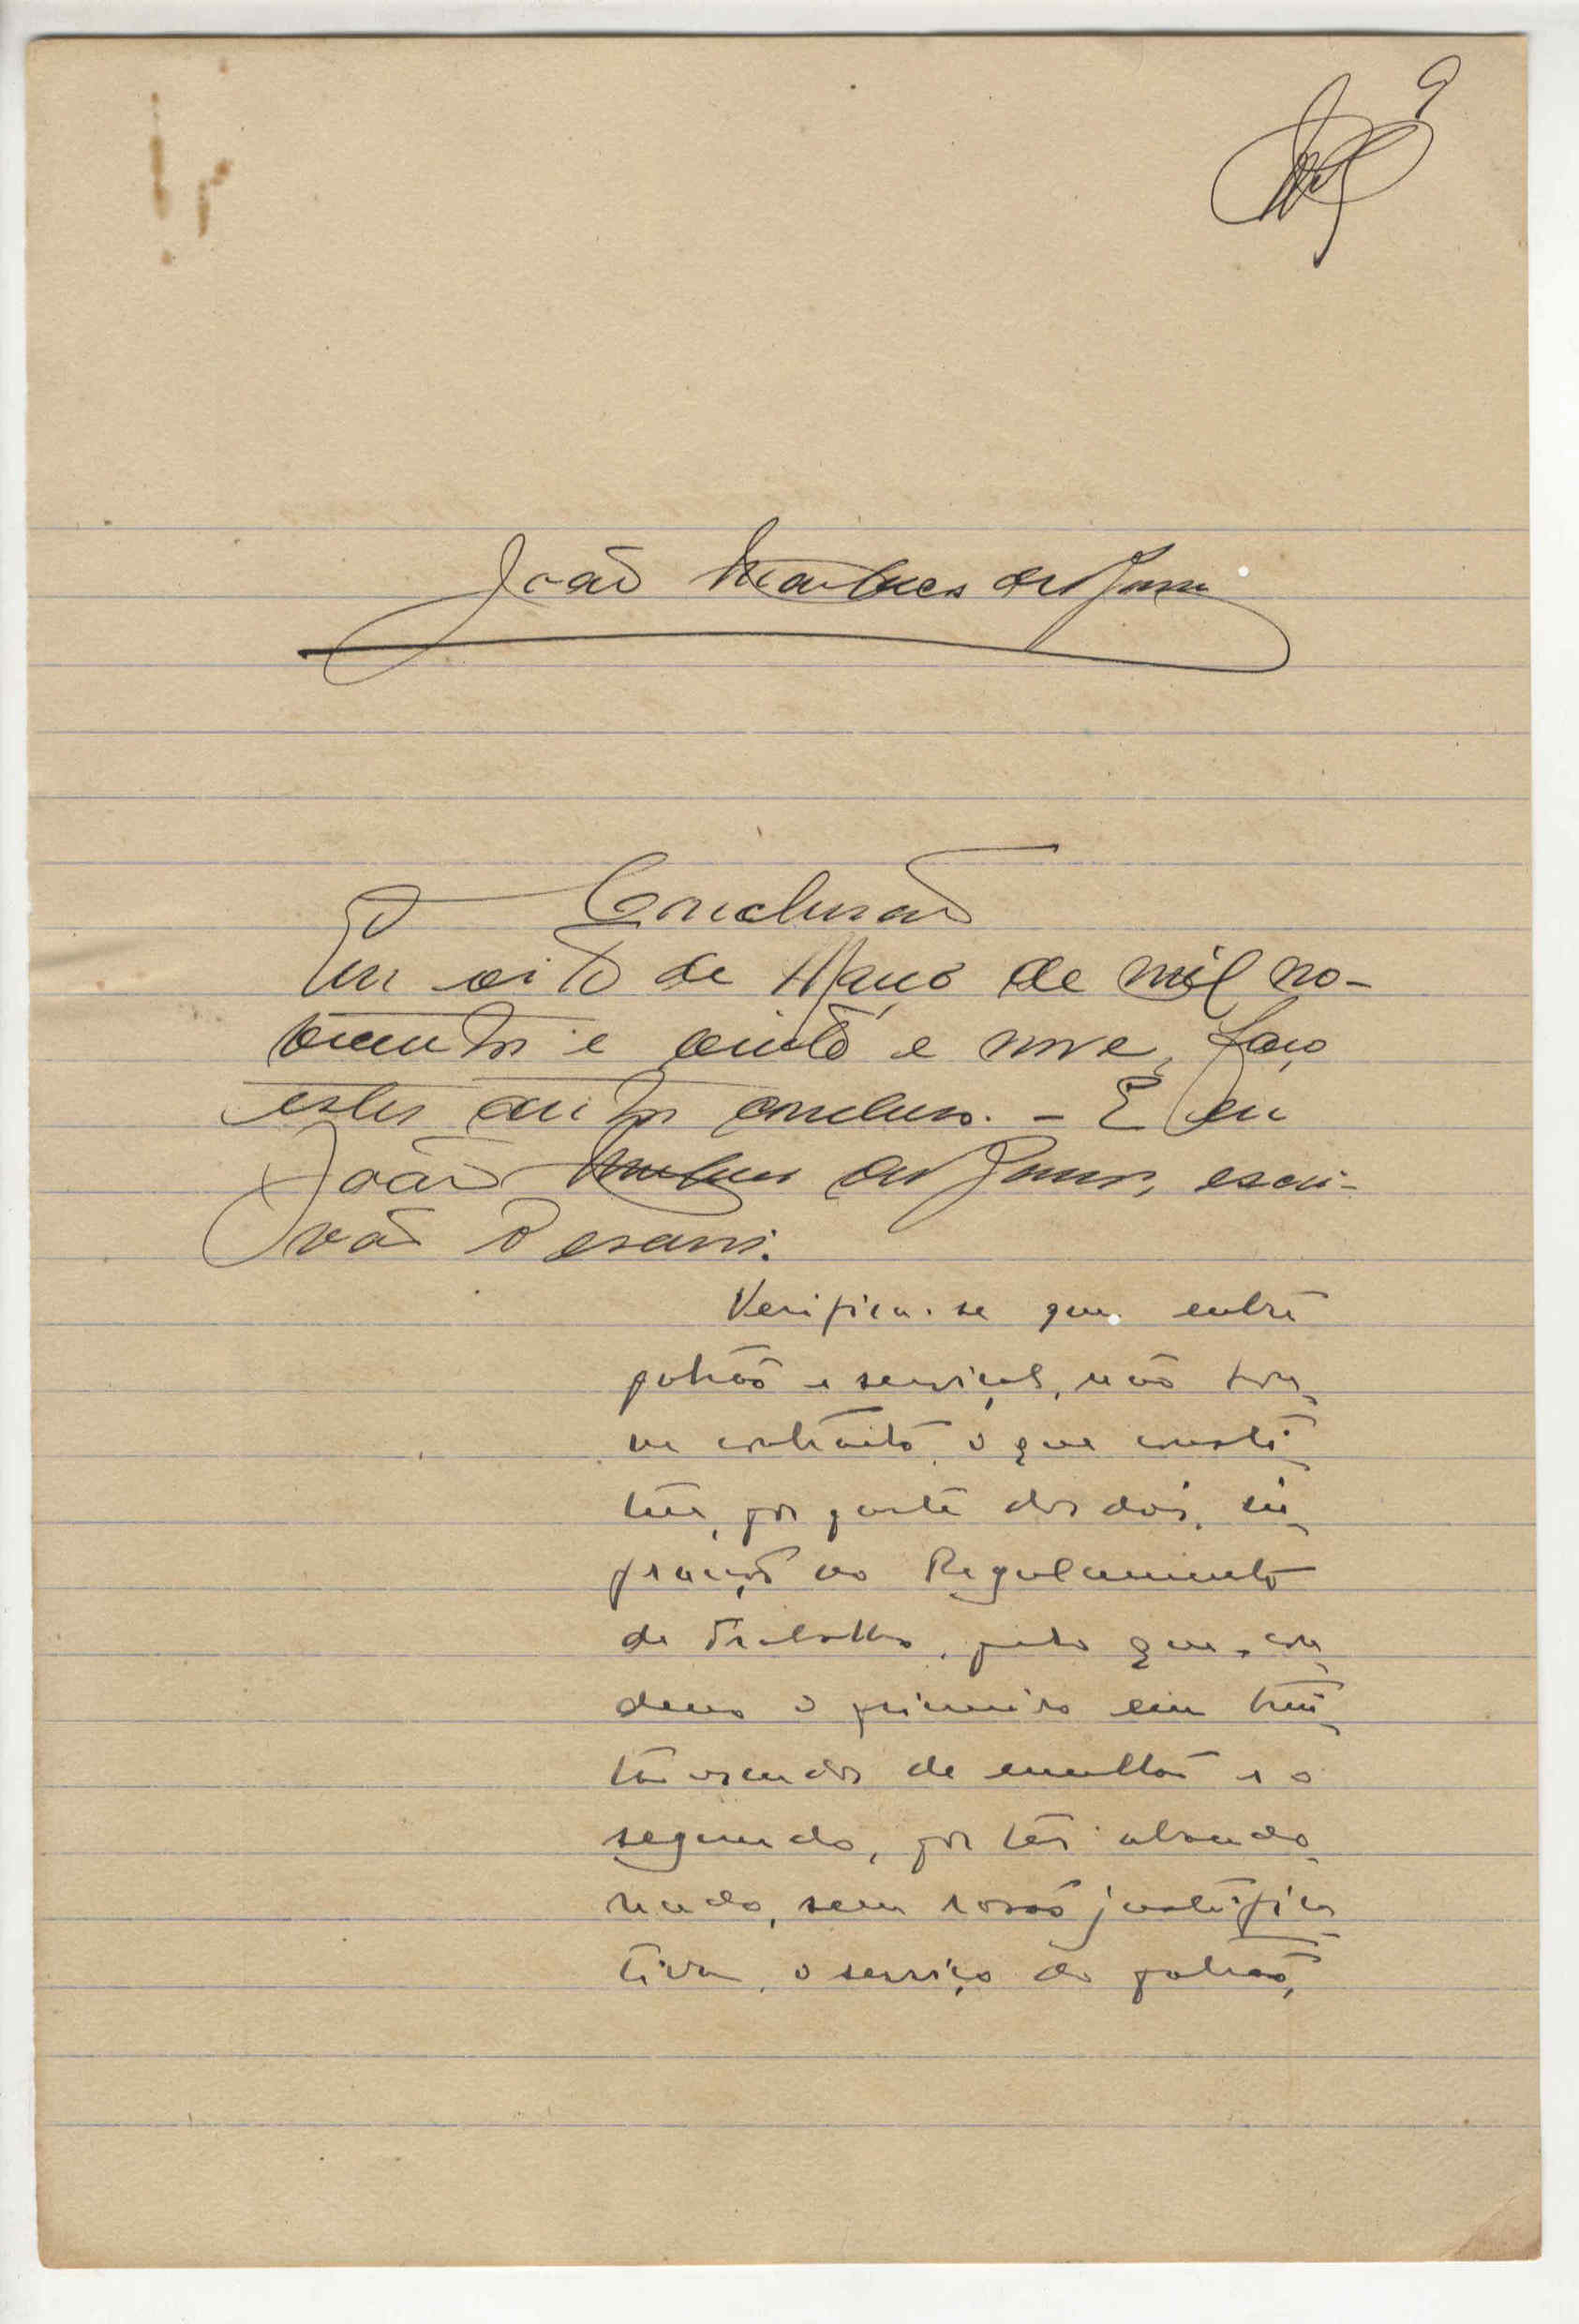 9
João Martires dos
Conclusão
Em oito de Março de mil no-
vecentos e vinte e nove, faço
estes autos conclusos. - E eu
João dos, escri-
vão o escrevi.
Verifica-se que entre
patrão e serviçal, não hou
ve contrato, o que consti
tue, por parte dos dois, in
fracção ao Regulamento
de Trabalho, pelo que, con
deno o primeiro em trin
ta escudos de multa e o
segundo, por ter abando
nado, sem rasão justifica
tiva, o serviço do patrão,